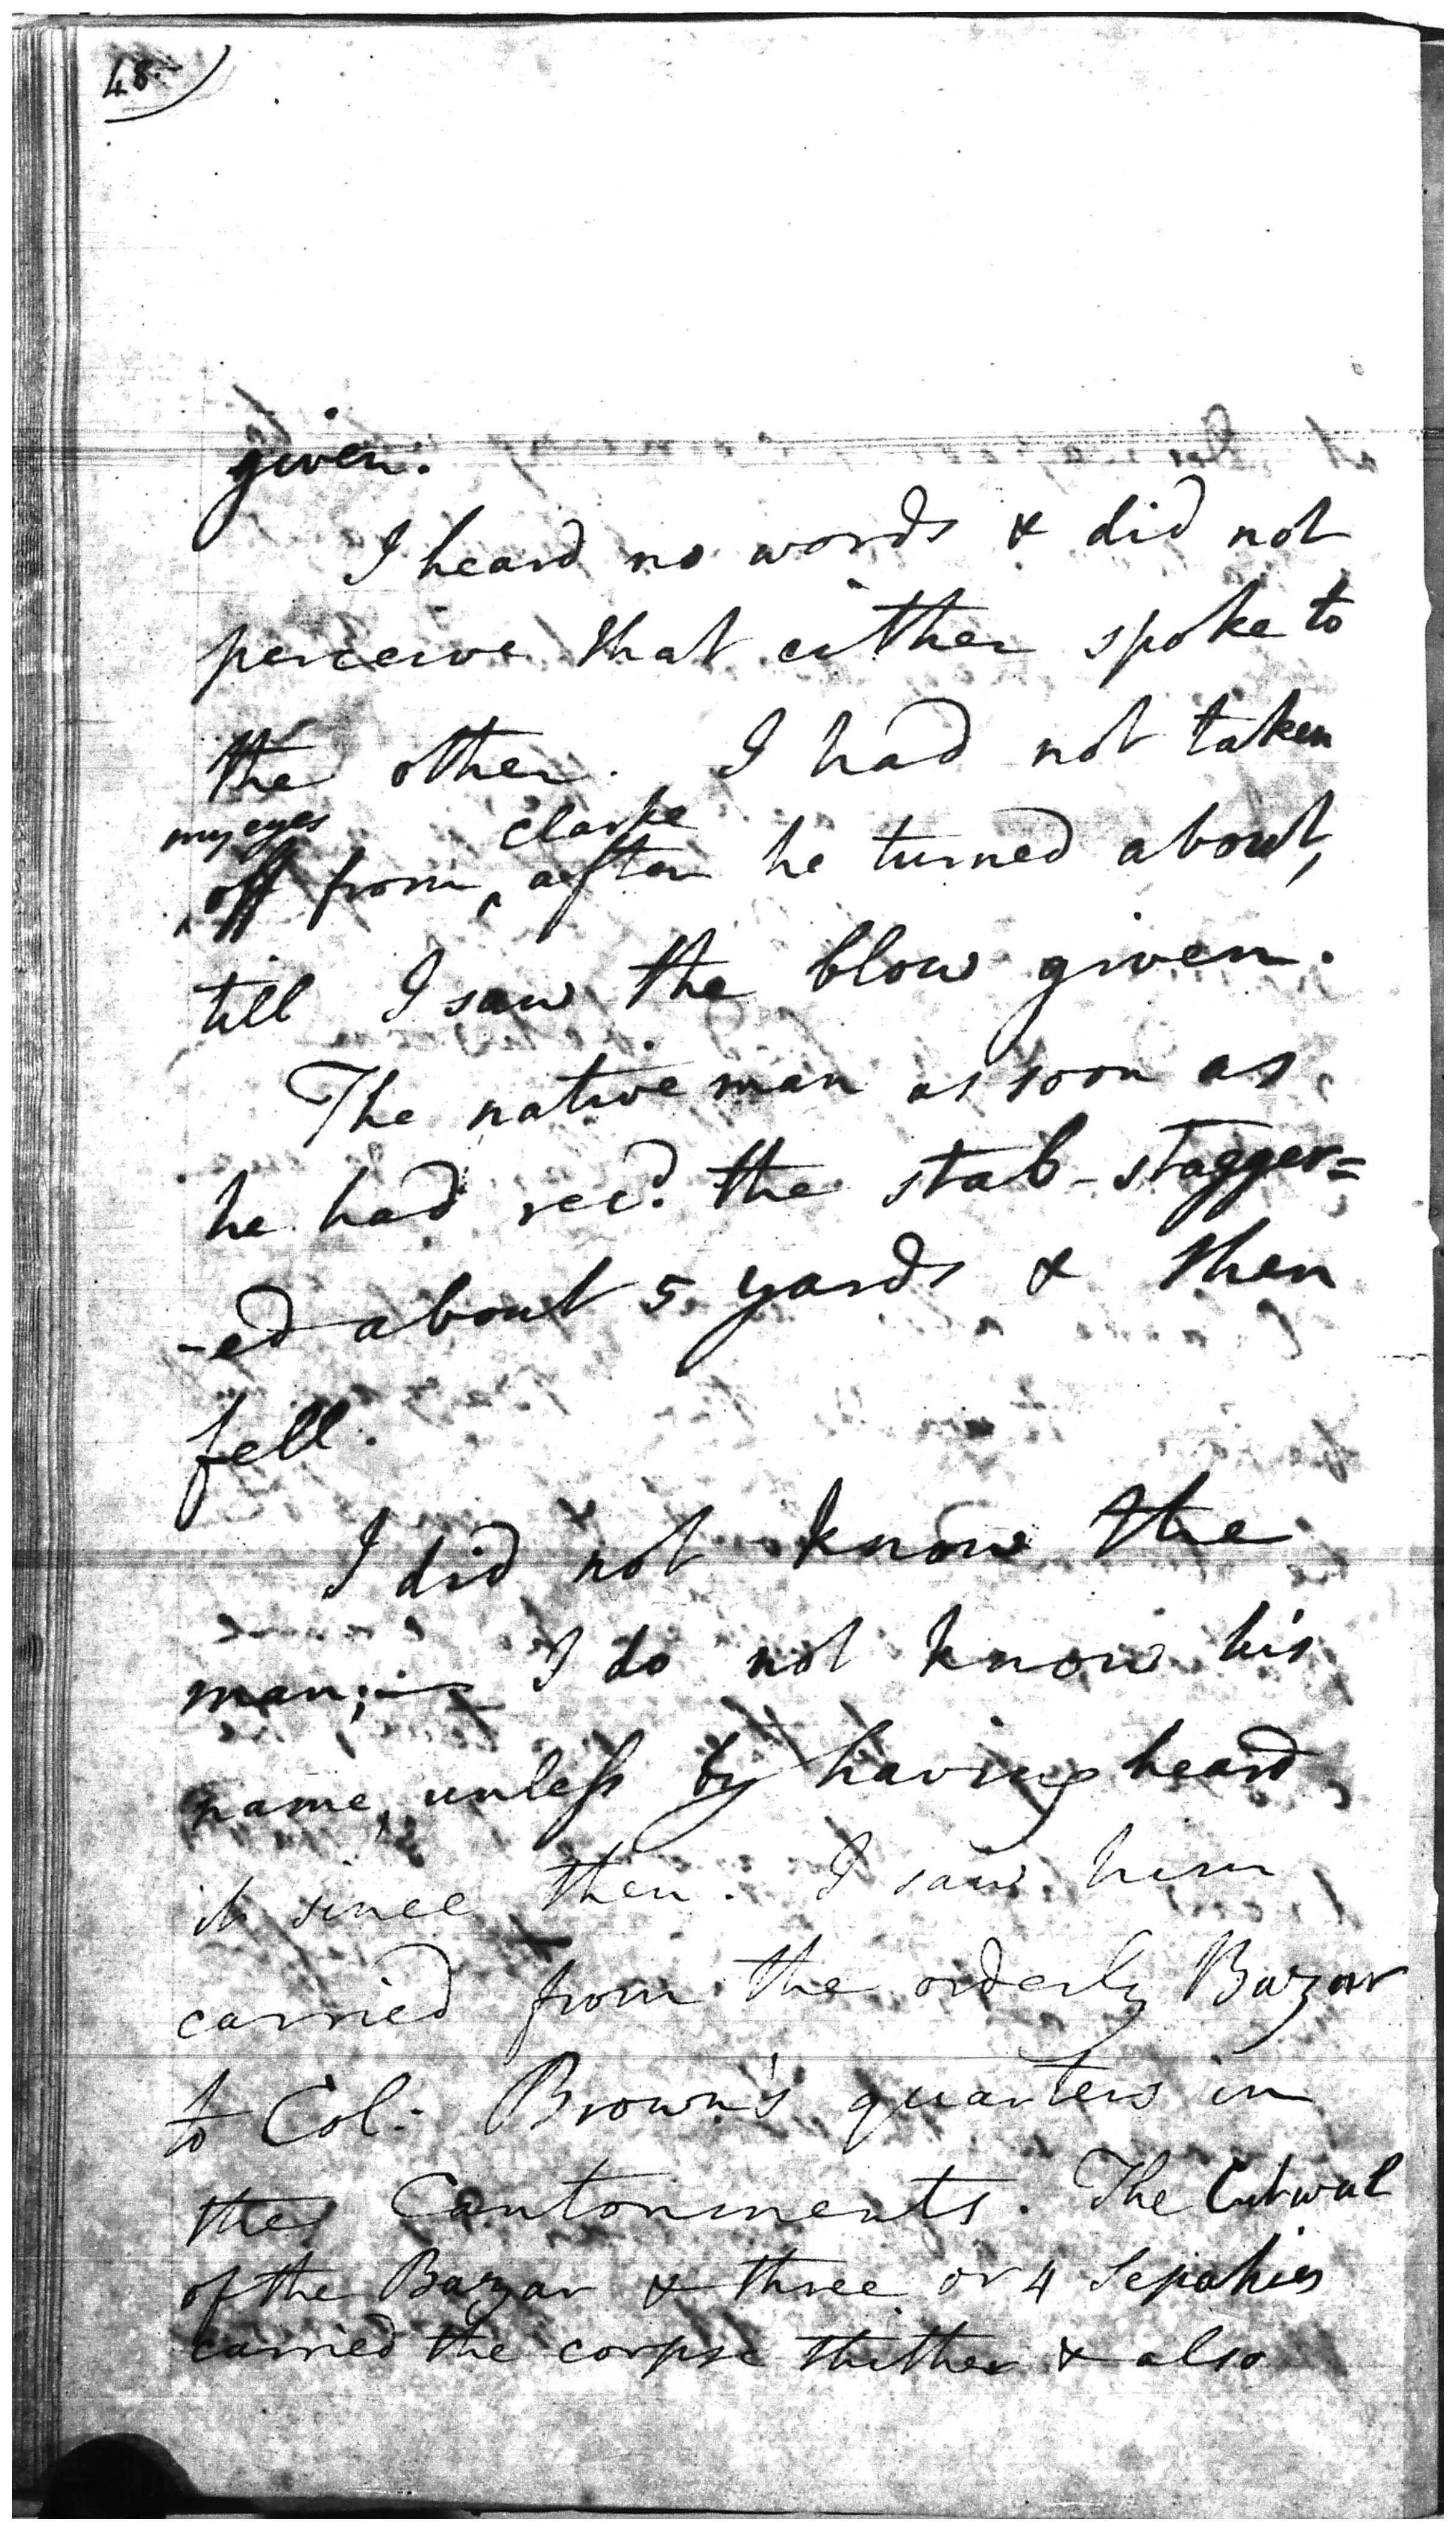 48.
given.
I heard no words & did not
perceive that either spoke to
the other. I had not taken
my eyes Clarke
off from after he turned about,
till I saw the blow given.
The native man as soon as
he had recd. the stab - stagger=
-ed about 5 yards & then
fell.
I did not know the
man; — I do not know his
name, unless by having heard
it since then. I saw him
carried from the orderly Bazar
to Col: Brown's quarters in
the Cantonments. The Cutwal
of the Bazar & three or 4 Sepahies
carried the corpse thither & also